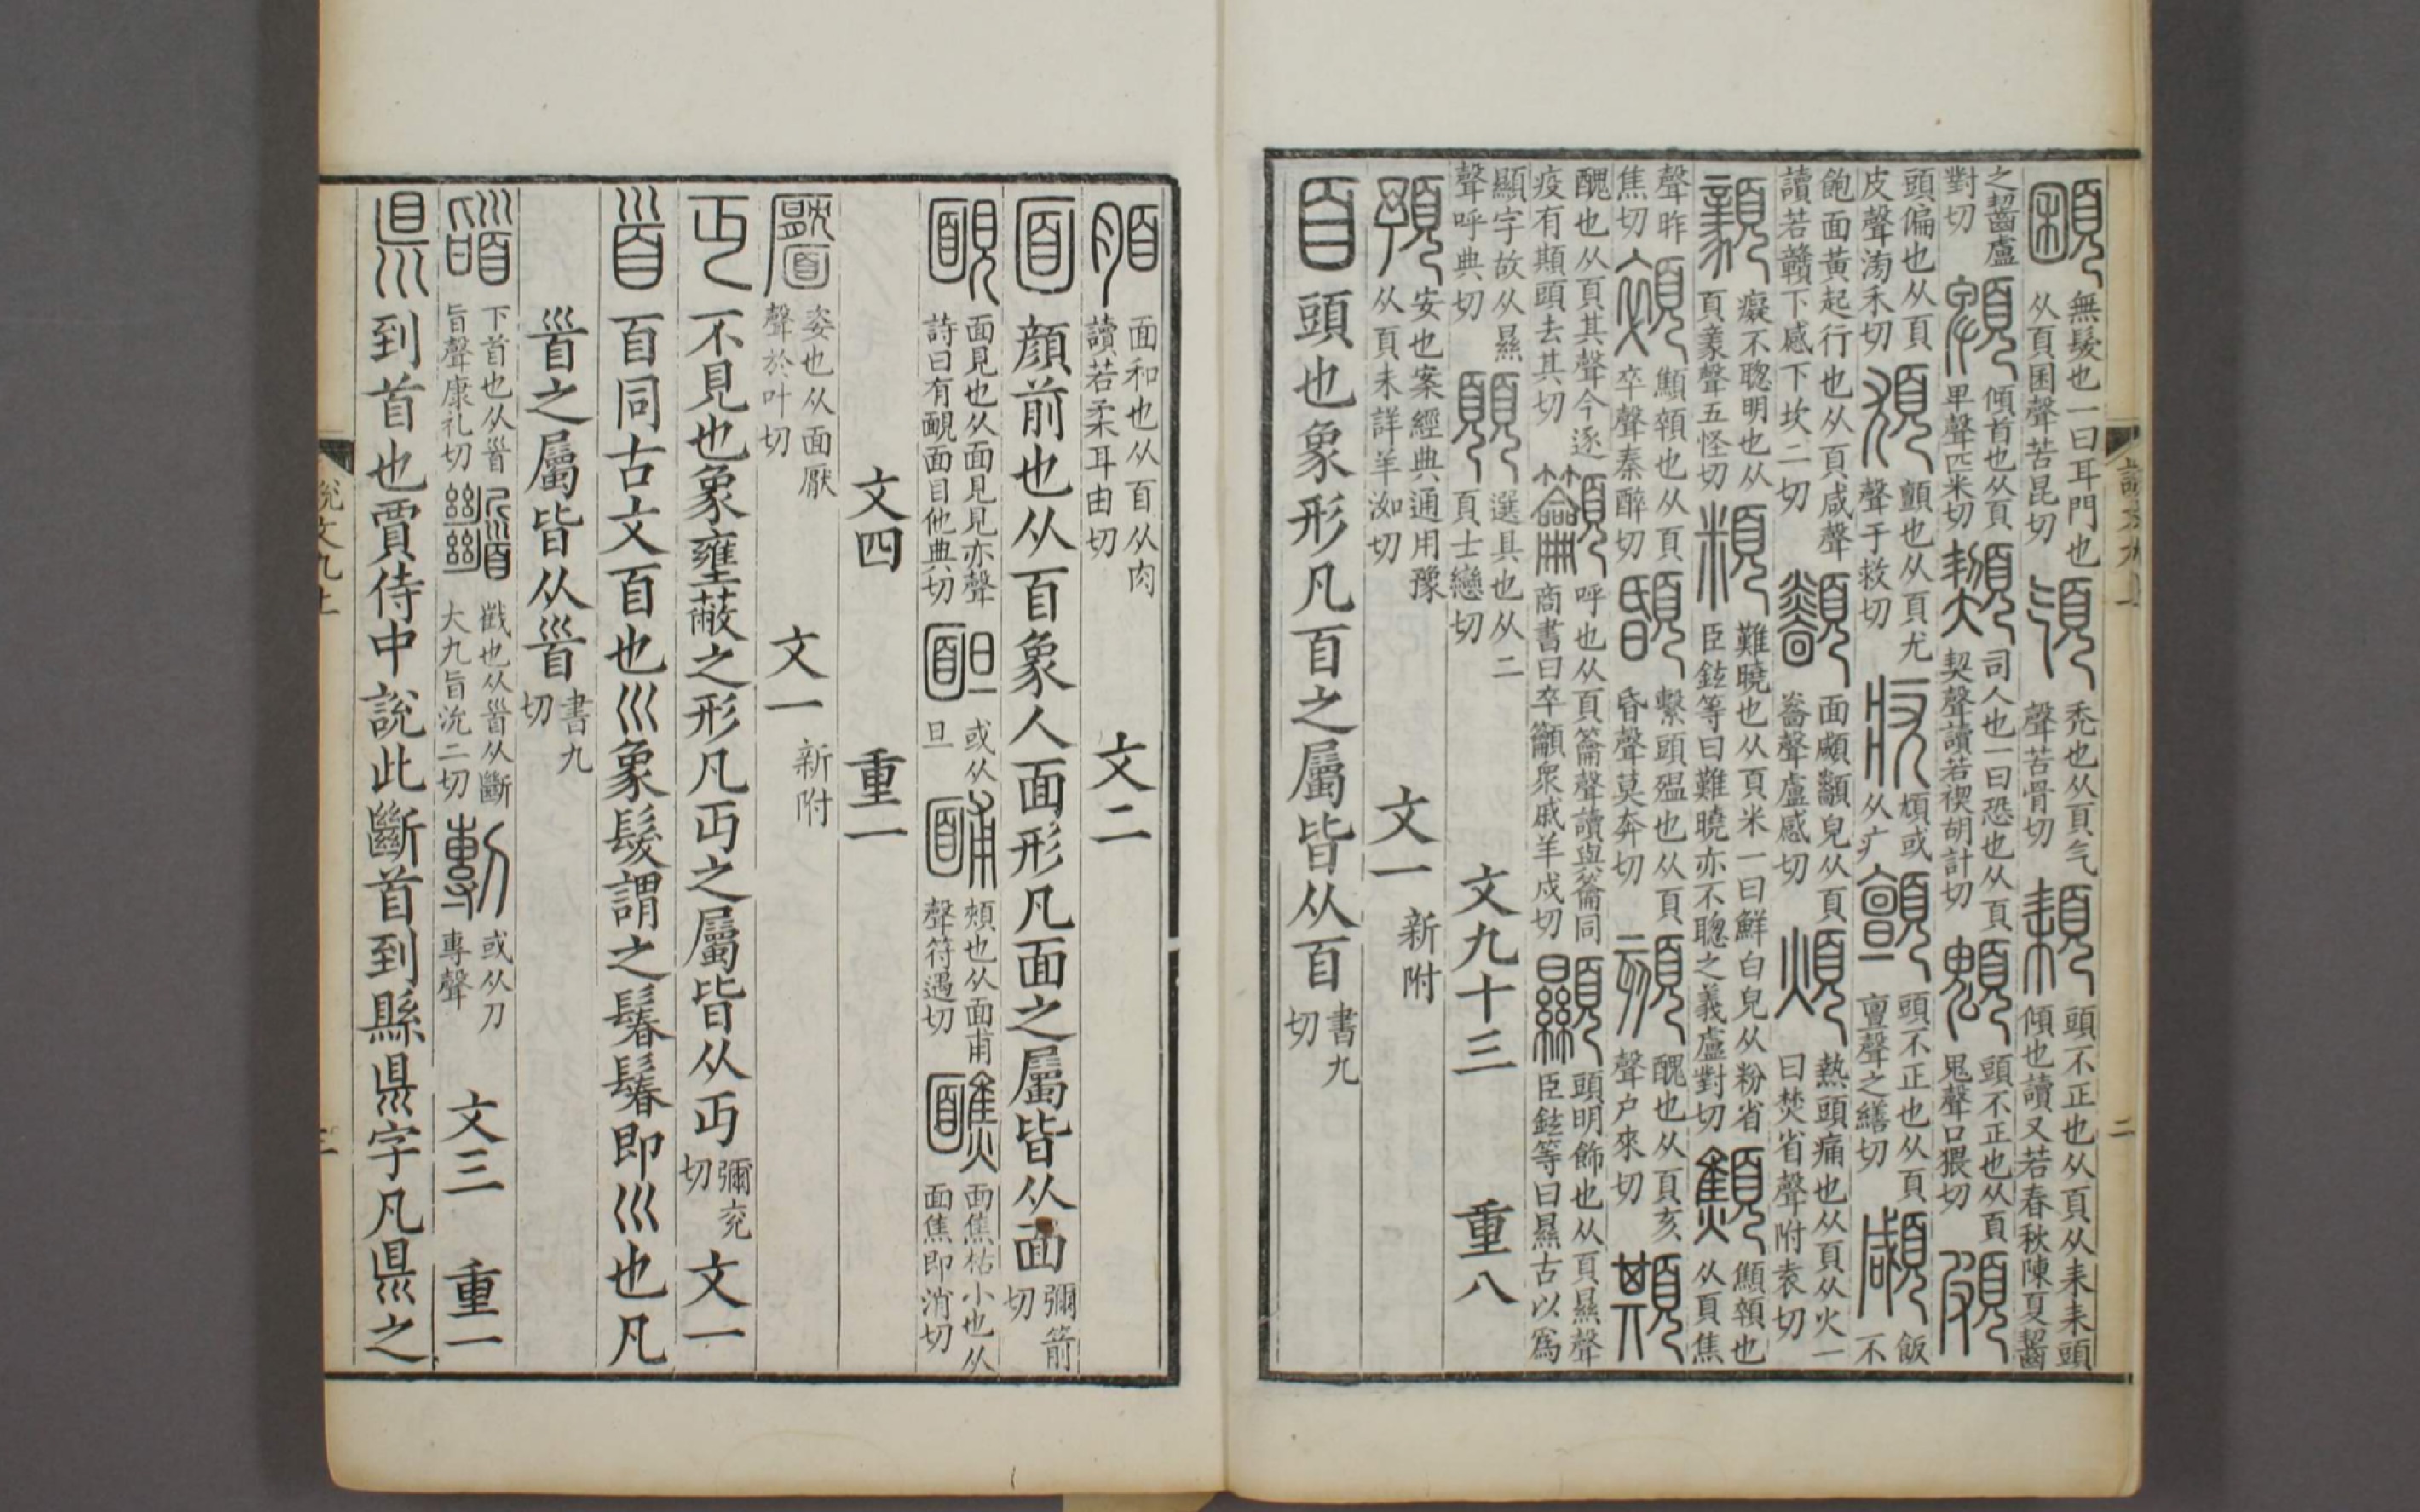 無髮也一曰耳門也从頁囷聲苦昆切 𩑔 禿也从頁气聲苦骨切 頛 頭不正也从頁从耒耒頭傾也讀又若春秋陳夏齧
之齧盧對切 䫌 傾首也从頁卑聲匹米切 䫔 司人也一曰恐也从頁契聲讀若禊胡計切 䫥 頭不正也从頁鬼聲口猥切 頗
頭偏也从頁皮聲滂禾切 𩑣 顫也从頁尤聲于救切 㽱 頄或从疒 顫 頭不正也从頁亶聲之繕切 顑 飯不
飽面黃起行也从頁咸聲讀若贛下感下坎二切 面顑顲皃从頁㐭聲盧感切 煩 熱頭痛也从頁从火一曰焚省聲附袁切
顡 癡不聰明也从頁豙聲五怪切 頪 難曉也从頁米一曰鮮白皃从粉省臣鉉等曰難曉亦不聰之義盧對切 顦 顦顇也从頁焦
聲昨焦切 顇 顦顇也从頁卒聲秦醉切 繫頭殟也从頁昏聲莫奔切 頦 醜也从頁亥聲户來切 䫏
醜也从頁其聲今逐疫有䫏頭去其切 籲 呼也从頁籥聲讀與籥同商書曰率籲衆戚羊戍切 顯 頭明飾也从頁㬎聲臣鉉等曰㬎古以爲
顯字故从㬎聲呼典切 選具也从二頁士戀切 文九十三 重八
預 安也案經典通用豫从頁未詳羊洳切 文一 新附
𦣻 頭也象形凡𦣻之屬皆从𦣻 書九切
脜 面和也从𦣻从肉讀若柔耳由切 文二
面 顔前也从𦣻象人面形凡面之屬皆从面 彌箭切
靦 面見也从面見見亦聲詩曰有靦面目他典切 䩆 或从旦 䩉 頰也从面甫聲符遇切 醮 面焦枯小也从面焦即消切
文四 重一
靨 姿也从面厭聲於叶切 文一 新附
丏 不見也象壅蔽之形凡丏之屬皆从丏 彌兖切 文一
𩠐 𦣻同古文𦣻也巛象髮謂之鬊鬊即巛也凡
𩠐之屬皆从𩠐 書九切
䭬 下首也从𩠐旨聲康礼切 𩠹 㦸也从𩠐从斷大丸旨沇二切 剸 或从刀專聲 文三 重一
県 到首也賈侍中說此斷首到縣県字凡県之
說文九上 三